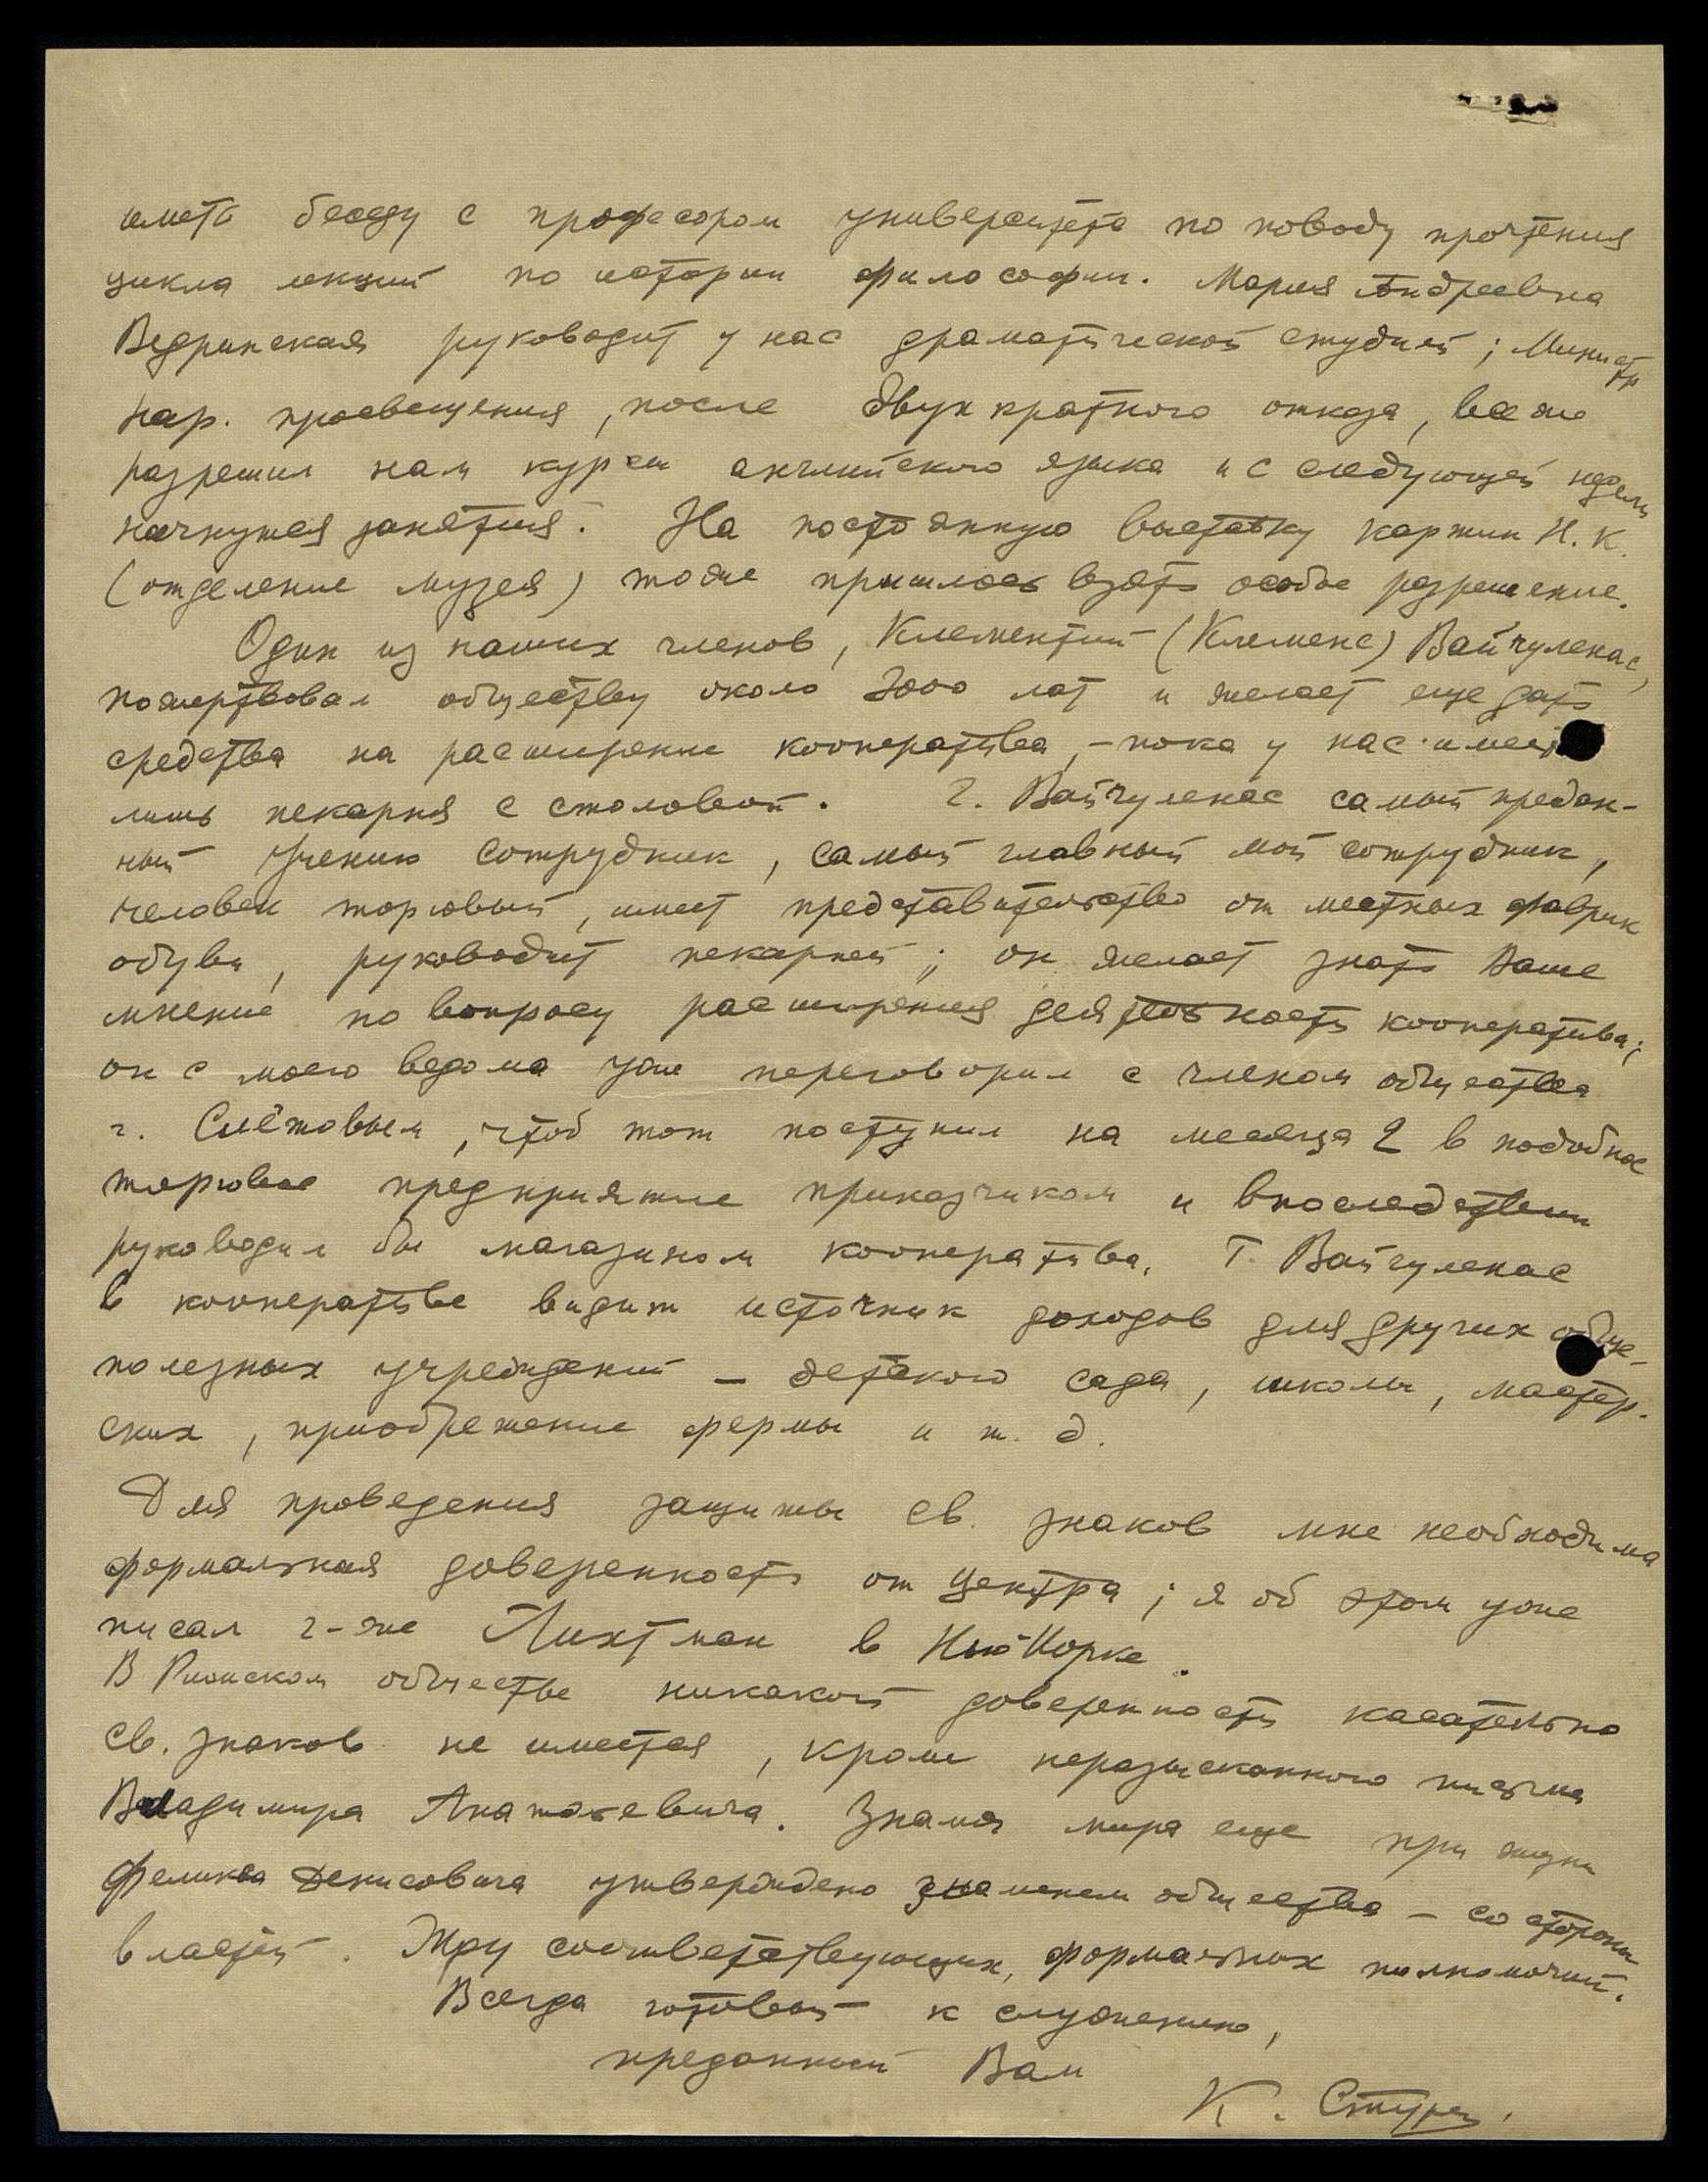 иметь беседу с професором университета по поводу прочтения
цикла лекций по истории философии. Мария Андреевна
Ведринская руководит у нас драматической студией; Министр
нар. просвещения, после двухкратного отказа, все же
разрешил нам курсы английского языка и с следующей недели
начнутся занятия. На постоянную выставку картин Н. К.
(отделение музея) тоже пришлось взять особое разрешение.
Один из наших членов, Клементий (Клеменс) Вайчуленас,
пожертвовал обществу около 3000 лат и желает еще дать
средства на расширение кооператива, – пока у нас имеется
лишь пекарня с столовой. Г. Вайчуленас самый предан-
ный Учению сотрудник, самый главный мой сотрудник,
человек торговый, имеет представительство от местных фабрик
обуви, руководит пекарней; он желает знать Ваше
мнение по вопросу расширения деятельность кооператива;
он с моего ведома уже переговорил с членом общества
г. Слётовым, чтоб тот поступил на месяца 2 в подобное
торговое предприятие приказчиком и впоследствии
руководил бы магазином кооператива. Г. Вайчуленас
в кооперативе видит источник доходов для других обще-
полезных учреждений – детского сада, школы, мастер-
ских, приобретение фермы и т. д.
Для проведения защиты св. знаков мне необходима
формальная доверенность от Центра; я об этом уже
писал г-же Лихтман в Нью Йорке.
В Рижском обществе никакой доверенности касательно
св. знаков не имеется, кроме неразысканного письма
Владимира Анатольевича. Знамя мира еще при жизни
Феликса Денисовича утверждено знаменем общества – со стороны
властей. Жду соответствующих, формальных полномочий.
Всегда готовый к служению,
преданный Вам
К. Стуре.